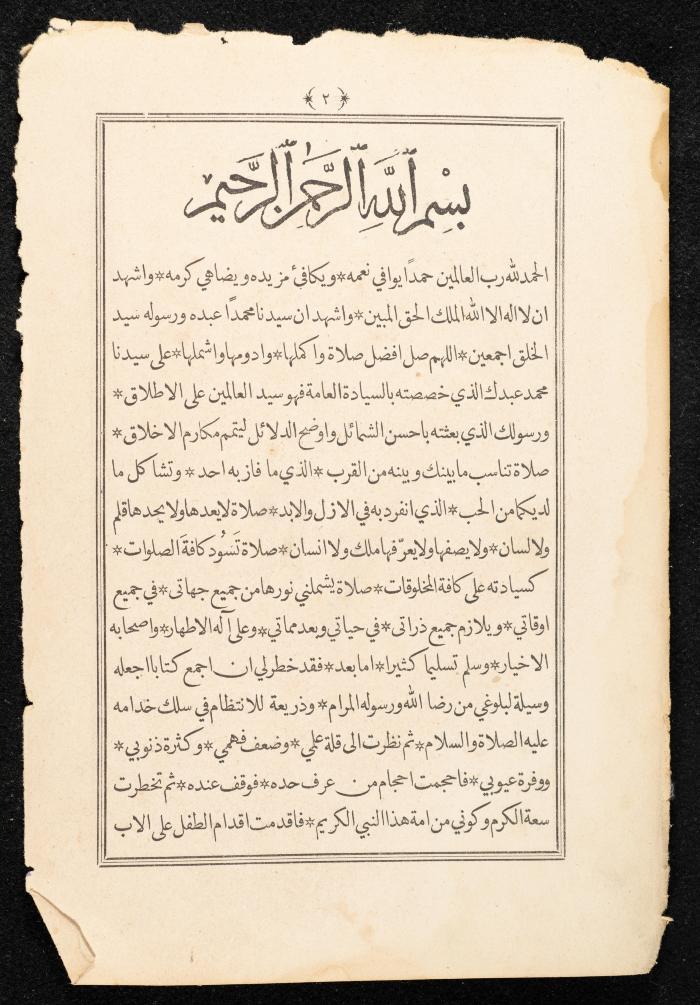 ﴿ ٢ ﴾
بسم الله الرحمن الرحيم
الحمد لله رب العالمين حمدًا يوافي نعمه * ويكافئ مزيده ويضاهي كرمه * واشهد
ان لا اله الا الله الملك الحق المبين * واشهد ان سيدنا محمدًا عبده ورسوله سيد
الخلق اجمعين * اللهم صل افضل صلاة واكملها * وادومها واشملها * على سيدنا
محمد عبدك الذي خصصته بالسيادة العامة فهو سيد العالمين على الاطلاق *
ورسولك الذي بعثته باحسن الشمائل واوضح الدلائل ليتمم مكارم الاخلاق *
صلاة تناسب ما بينك وبينه من القرب * الذي ما فاز به احد * وتشاكل ما
لديكما من الحب * الذي انفرد به في الازل والابد * صلاة لا يعدها ولا يحدها قلم
ولا لسان * ولا يصفها ولا يعرّفها ملك ولا انسان * صلاة تَسُود كافةَ الصلوات *
كسيادته على كافة المخلوقات * صلاة يشملني نورها من جميع جهاتى * في جميع
اوقاتي * ويلازم جميع ذراتى * في حياتي وبعد مماتي * وعلى آله الاطهار * واصحابه
الاخيار * وسلم تسليما كثيرا * اما بعد * فقد خطر لي ان اجمع كتابا اجعله
وسيلة لبلوغي من رضا الله ورسوله المرام * وذريعة للانتظام في سلك خدامه
عليه الصلاة والسلام * ثم نظرت الى قلة علمي * وضعف فهمي * وكثرة ذنوبي *
ووفرة عيوبي * فاحجمت احجام من عرف حده * فوقف عنده * ثم تخطرت
سعة الكرم وكوني من امة هذا النبي الكريم * فاقدمت اقدام الطفل على الاب